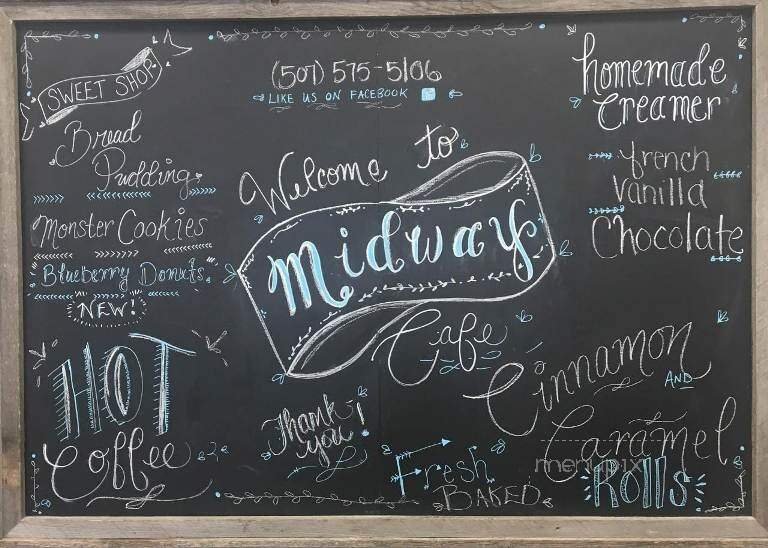 SWEET SHOP
Bread
Pudding
Monster Cookies
Blueberry Donuts
NEW!
HOT
Coffee
(507) 575-5106
LIKE US ON FACEBOOK
Welcome to
Midway
Cafe
Thank
you!
homemade
creamer
french
vanilla
Chocolate
Cinnamon
AND
Caramel
Rolls
Fresh
BAKED
menupix